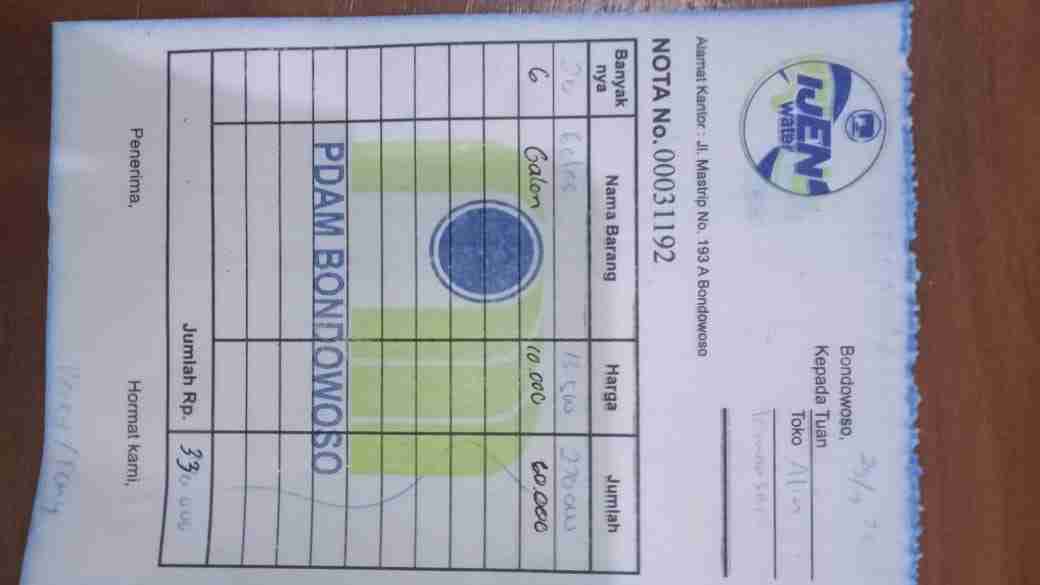 IJEN
water
Alamat Kantor : Jl. Mastrip No. 193 A Bondowoso
NOTA No. 00031192
Bondowoso,
Kepada Tuan
Toko
Banyak nya Nama Barang Harga Jumlah
20 Gelas 13.500 270.000
6 Galon 10.000 60.000
PDAM BONDOWOSO
Jumlah Rp. 330.000
Penerima, Hormat kami,